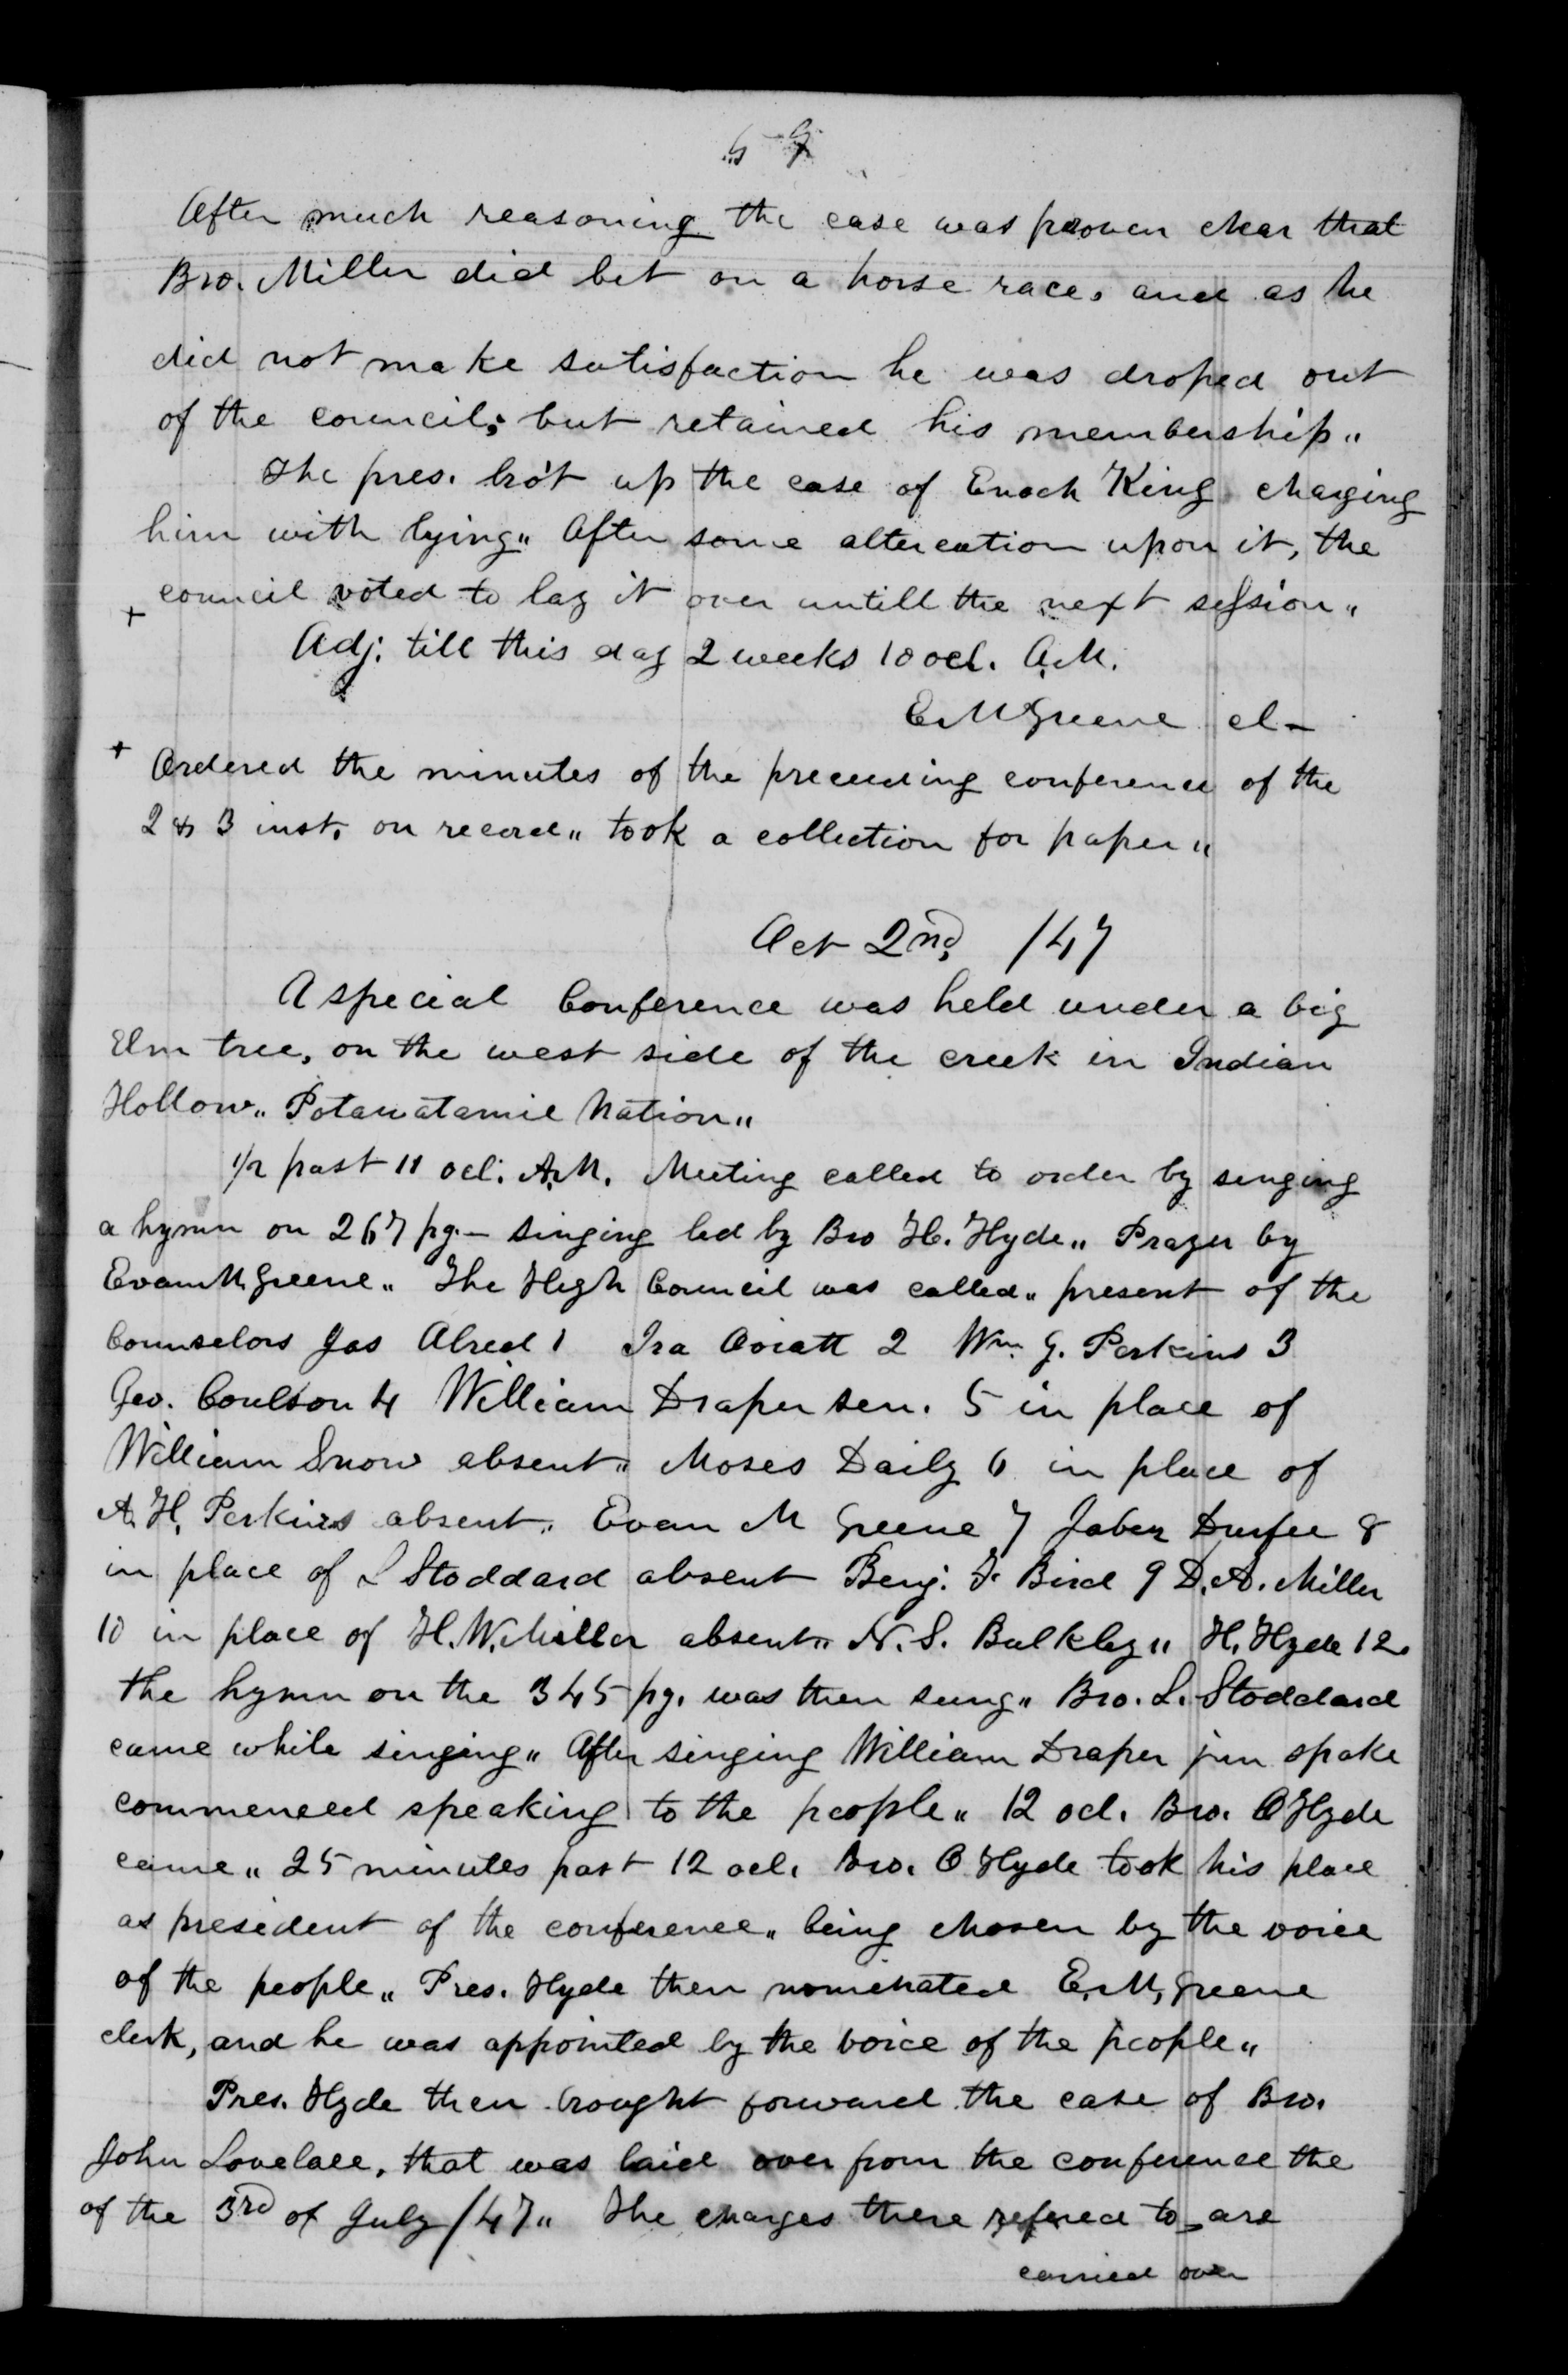 After much reasoning the case was proven clear that
Bro. Miller did bet on a horse race, and as he
did not make satisfaction he was droped out
of the council; but retained his membership„
The pres. bro't up the case of Enoch King charging
him with lying„ After some altercation upon it, the
+ council voted to lay it over untill the next session„
Adj. till this day 2 weeks 10 ocl. A.M.
E.M Greene cl-
+ Ordered the minutes of the preceeding conference of the
2 & 3 inst. on record„ took a collection for paper„
Oct 2nd, /47
A special Conference was held under a big
Elm tree, on the west side of the creek in Indian
Hollow„ Potawatamie Nation„
1/2 past 11 ocl. A.M. Meeting called to order by singing
a hymn on 267 pg.- singing led by Bro H. Hyde„ Prayer by
Evan M Greene„ The High Council was called„ present of the
Counselors Jas Alred 1 Ira Oviatt 2 Wm. G. Perkins 3
Geo. Coulson 4 William Draper sen. 5 in place of
William Snow absent„ Moses Daily 6 in place of
A. H. Perkins absent„ Evan M Greene 7 Jabez Durfee 8
in place of L Stoddard absent Benj. F. Bird 9 D. A. Miller
10 in place of H. W. Miller absent„ N. S. Bulkley 11 H. Hyde 12.
the hymn on the 345 pg. was then sung„ Bro. L. Stoddard
came while singing„ After singing William Draper jun spoke
commenced speaking to the people„ 12 ocl. Bro. O Hyde
came„ 25 minutes past 12 ocl. Bro. O Hyde took his place
as president of the conference„ being chosen by the voice
of the people„ Pres. Hyde then nominated E. M, Greene
clerk, and he was appointed by the voice of the people„
Pres. Hyde then brought forward the case of Bro.
John Lovelace, that was laid over from the conference the
of the 3rd of July /47„ The charges there refered to are
carried over